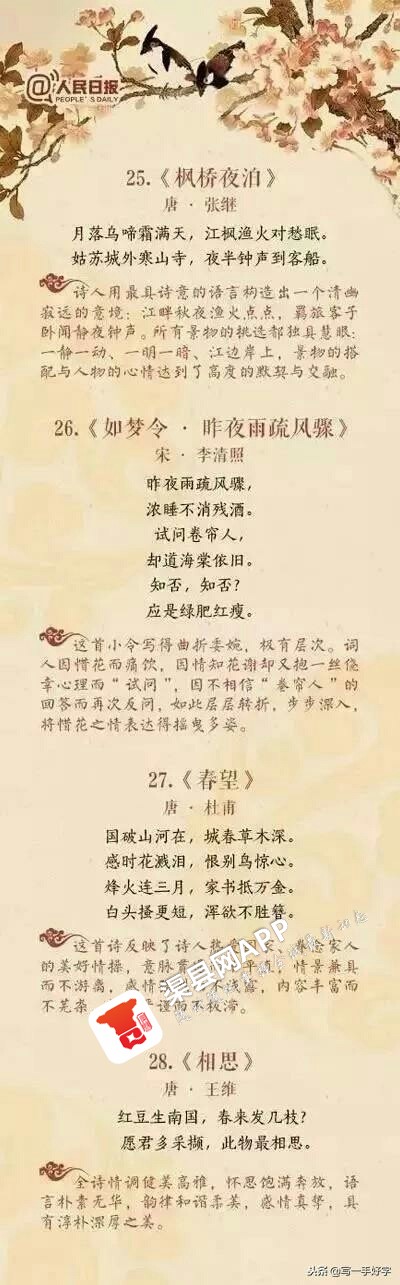 @人民日报
PEOPLE'S DAILY
25.《枫桥夜泊》
唐 · 张继
月落乌啼霜满天，江枫渔火对愁眠。
姑苏城外寒山寺，夜半钟声到客船。
诗人用最具诗意的语言构造出一个清幽
寂远的意境：江畔秋夜渔火点点，羁旅客子
卧闻静夜钟声。所有景物的挑选都独具慧眼：
一静一动、一明一暗、江边岸上，景物的搭
配与人物的心情达到了高度的默契与交融。
26.《如梦令 · 昨夜雨疏风骤》
宋 · 李清照
昨夜雨疏风骤，
浓睡不消残酒。
试问卷帘人，
却道海棠依旧。
知否，知否？
应是绿肥红瘦。
这首小令写得曲折委婉，极有层次。词
人因惜花而痛饮，因情知花谢却又抱一丝侥
幸心理而“试问”，因不相信“卷帘人”的
回答而再次反问，如此层层转折，步步深入，
将惜花之情表达得摇曳多姿。
27.《春望》
唐 · 杜甫
国破山河在，城春草木深。
感时花溅泪，恨别鸟惊心。
烽火连三月，家书抵万金。
白头搔更短，浑欲不胜簪。
这首诗反映了诗人热爱 、眷念家人
的美好情操，意脉 ，情景兼具
而不游离，感情 不浅露，内容丰富而
不芜杂， 严谨而不板滞。
渠县网APP
28.《相思》
唐 · 王维
红豆生南国，春来发几枝？
愿君多采撷，此物最相思。
全诗情调健美高雅，怀思饱满奔放，语
言朴素无华，韵律和谐柔美，感情真挚，具
有淳朴深厚之美。
头条 @写一手好字